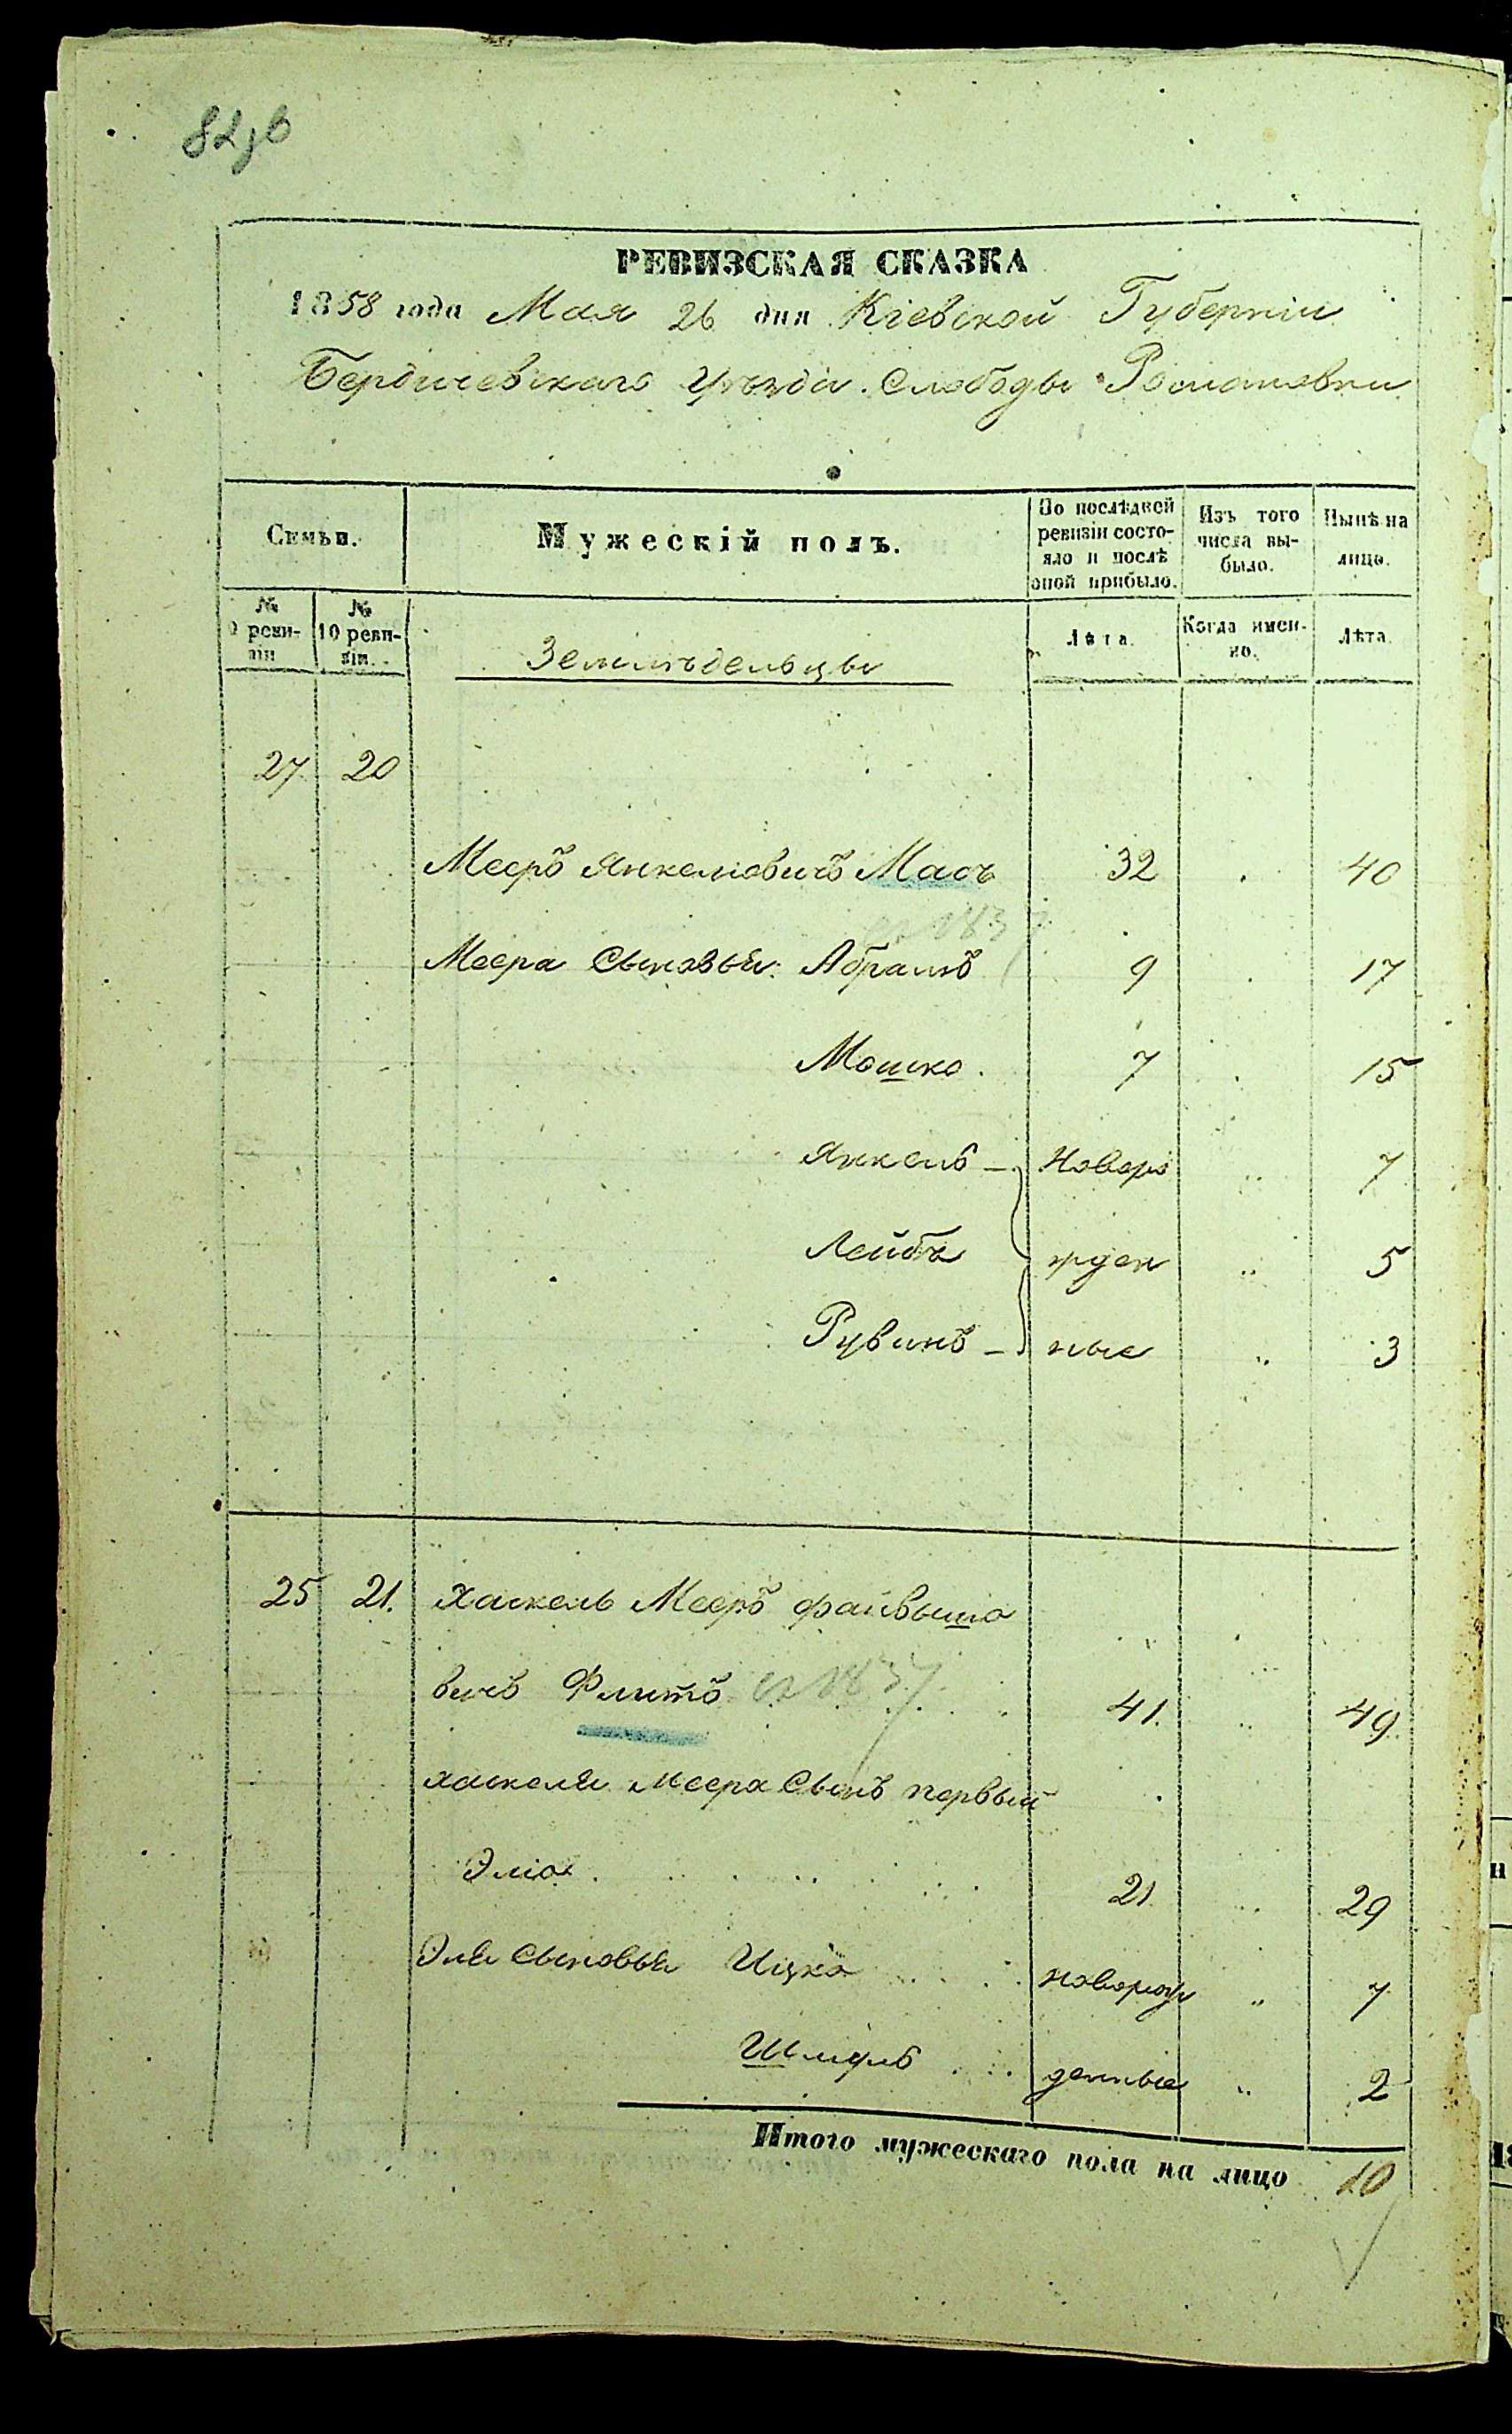 РЕВИЗСКАЯ СКАЗКА
1858 года Мая 26 дня Кіевской Губерніи
Бердичевскаго Уѣзда Слободы Романовки
Семьи.
Мужескій полъ.
По послѣдней ревизіи состояло и послѣ оной прибыло.
Изъ того числа выбыло.
Нынѣ на лицо.
№ 9 ревизіи
№ 10 ревизіи.
Земледѣльцы
Лѣта.
Когда именно.
Лѣта.
27 20
Мееръ Янкелювичъ Мась 32 40
Меера Сыновья: Абрамъ 9 17
Мошко. 7 15
Янкель Новоро 7
Лейба жден 5
Рувинъ ные 3
25 21. Хаскель Мееръ Файвышо
вичъ Флитъ 41. 49.
Хаскеля Меера Сынъ первый
Эліо 21 29
Эли Сыновья Ицко новорож „ 7
Шмуль денные „ 2
Итого мужескаго пола на лицо 10